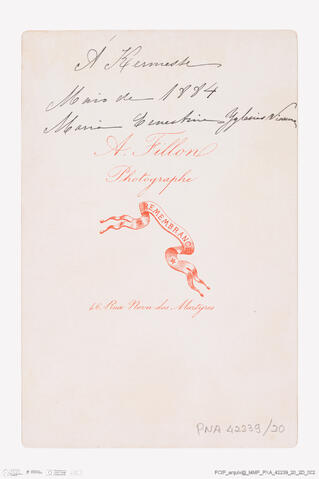 Á Kermesse
Maio de 1884
Maria Ernestina Yglesias Vianna
A. Fillon
Photographe
REMEMBRANCE
46, Rua Nova dos Martyres
PNA 42239/20
PCIP_arquivo@_MMP_PNA_42239_20_2D_002